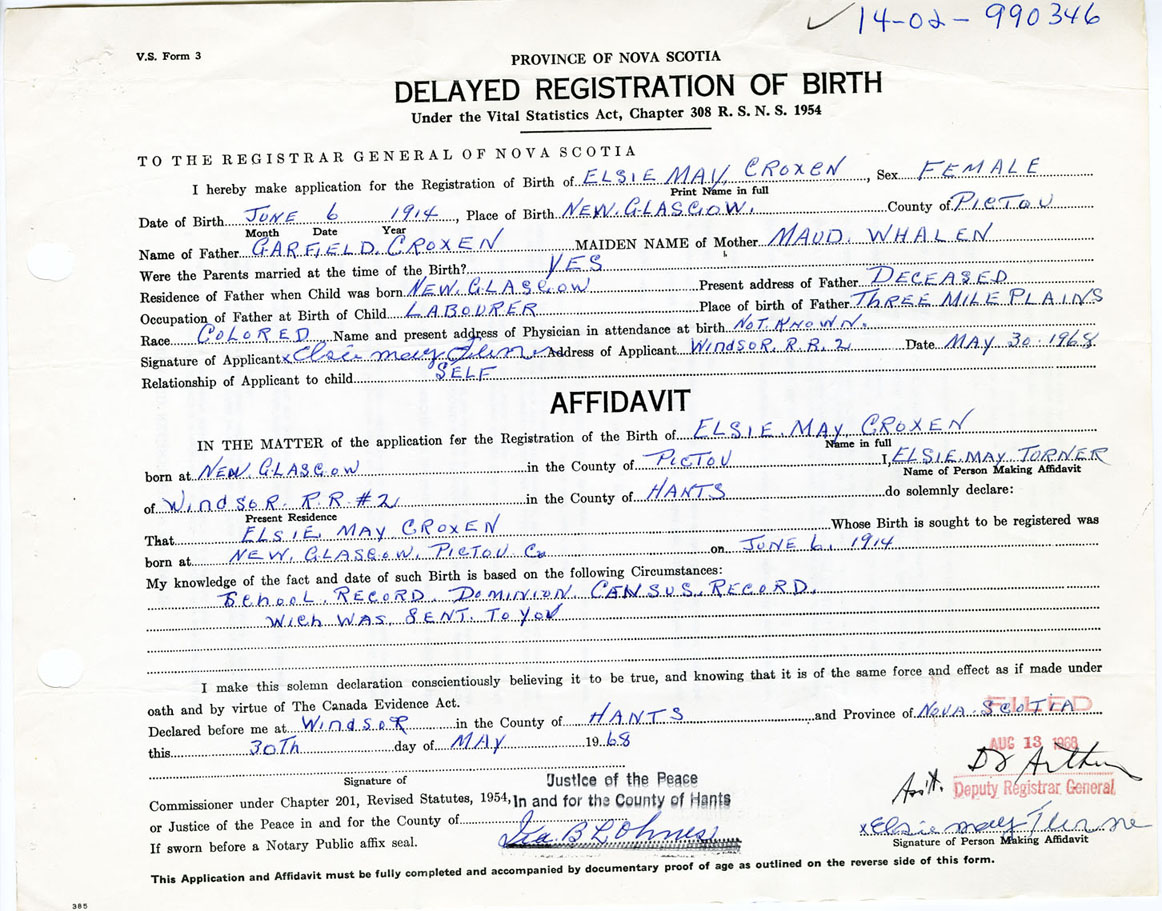 14-02-990346
V.S. Form 3
PROVINCE OF NOVA SCOTIA
DELAYED REGISTRATION OF BIRTH
Under the Vital Statistics Act, Chapter 308 R. S. N. S. 1954
TO THE REGISTRAR GENERAL OF NOVA SCOTIA
I hereby make application for the Registration of Birth of ELSIE MAY CROXEN, Sex FEMALE
Print Name in full
Date of Birth JUNE 6 1914, Place of Birth NEW GLASGOW. County of PICTOU
Month Date Year
Name of Father GARFIELD CROXEN MAIDEN NAME of Mother MAUD WHALEN
Were the Parents married at the time of the Birth? YES
Residence of Father when Child was born NEW GLASGOW Present address of Father DECEASED
Occupation of Father at Birth of Child LABOURER Place of birth of Father THREE MILE PLAINS
Race COLORED Name and present address of Physician in attendance at birth NOT KNOWN.
Signature of Applicant x Elsie may Address of Applicant WINDSOR. R.R. 2 Date MAY 30. 1968
Relationship of Applicant to child SELF
AFFIDAVIT
IN THE MATTER of the application for the Registration of the Birth of ELSIE MAY CROXEN
Name in full
born at NEW GLASGOW in the County of PICTOU I, ELSIE MAY TORNER
Name of Person Making Affidavit
of WINDSOR R.R #2 in the County of HANTS do solemnly declare:
Present Residence
That ELSIE MAY CROXEN Whose Birth is sought to be registered was
born at NEW GLASGOW, PICTOU Co on JUNE 6, 1914
My knowledge of the fact and date of such Birth is based on the following Circumstances:
SCHOOL RECORD DOMINION CANSUS RECORD.
WICH WAS SENT TO YOU
I make this solemn declaration conscientiously believing it to be true, and knowing that it is of the same force and effect as if made under
oath and by virtue of The Canada Evidence Act.
Declared before me at WINDSOR in the County of HANTS and Province of NOVA SCOTIA
FILED
this 30TH day of MAY 1968
AUG 13 1968
Signature of
Justice of the Peace
Asst. Deputy Registrar General
Commissioner under Chapter 201, Revised Statutes, 1954, In and for the County of Hants
or Justice of the Peace in and for the County of
x Elsie may Turne
If sworn before a Notary Public affix seal.
Signature of Person Making Affidavit
This Application and Affidavit must be fully completed and accompanied by documentary proof of age as outlined on the reverse side of this form.
385